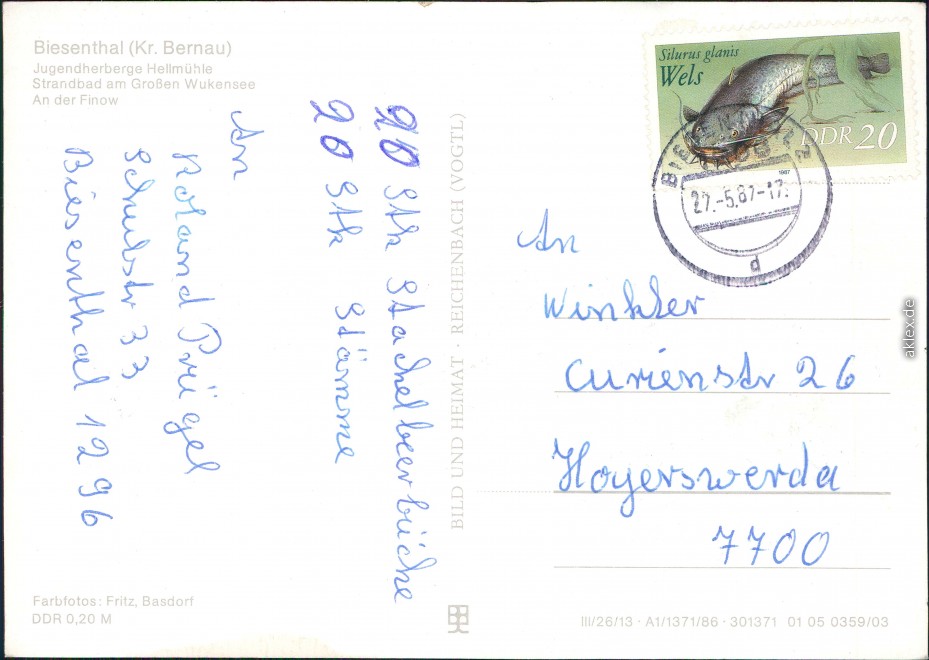 Biesenthal (Kr. Bernau)
Jugendherberge Hellmühle
Strandbad am Großen Wukensee
An der Finow
20 Stk Stachelbeerbüche
20 Stk Stämme
An
Roland Prügel
Schulstr 33
Biesenthal 1296
Farbfotos: Fritz, Basdorf
DDR 0,20 M
BILD UND HEIMAT · REICHENBACH (VOGTL)
Silurus glanis
Wels
DDR 20
1987
27.-5.87-17.
d
An
Winkler
Curienstr 26
Hoyerswerda
7700
III/26/13 · A1/1371/86 · 301371 01 05 0359/03
aklex.de